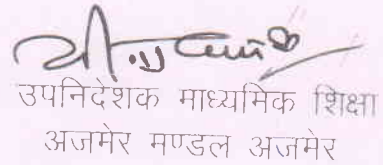 उपनिदेशक माध्यमिक शिक्षा
अजमेर मण्डल अजमेर